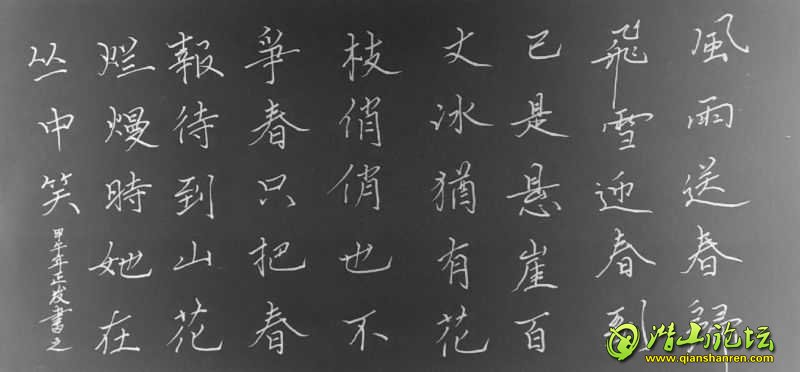 風雨送春歸
飛雪迎春到
已是悬崖百
丈冰猶有花
枝俏俏也不
爭春只把春
報待到山花
烂熳時她在
丛中笑
甲午年正发書之
潜山论坛
www.qianshanren.com